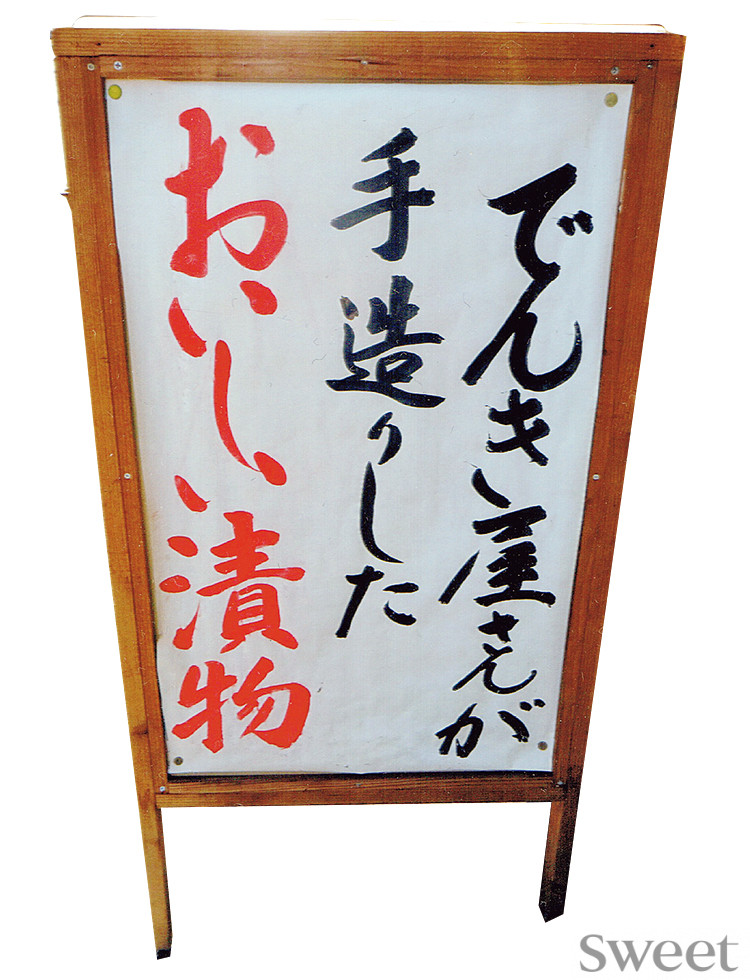 でんき屋さんが
手造りした
おいしい漬物
Sweet